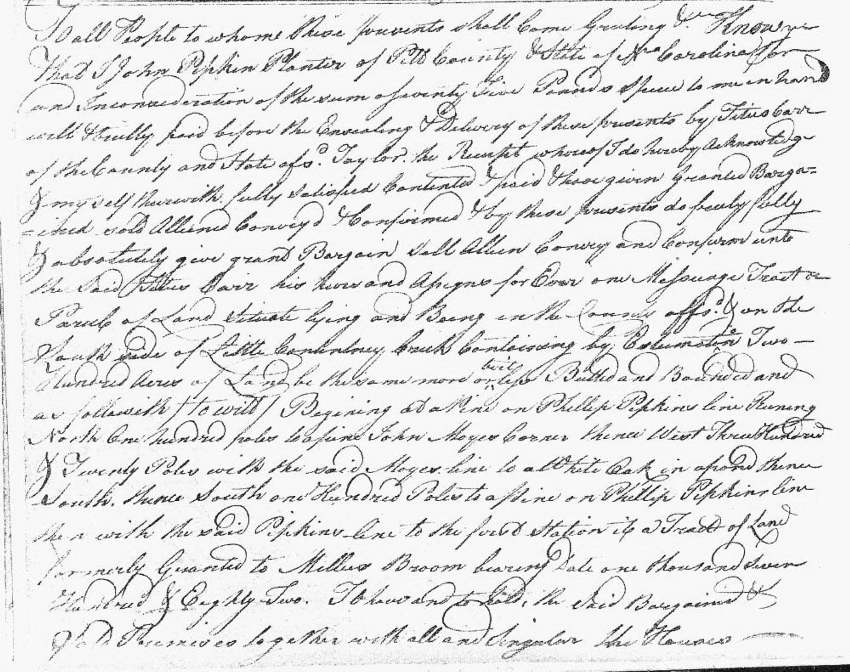 To all People to whome these presents shall Come Greeting &c Know ye
That I John Pipkin Planter of Pitt County & State of No Carolina for
and Inconsideration of the sum of seventy Five Pounds specie to me in hand
well & trully paid before the Ensealing & Delivery of these presents by Titus Carr
of the County and State afsd. Taylor. the Receipt whereof I do hereby Acknowledge
& my self therewith fully Satisfied Contented & paid & have given Granted Barga=
=ined sold Aliened Convey'd & Confirmed & by these presents do freely fully
& absolutely give grant Bargain Sell Alien Convey and Confirm unto
the Said Titus Carr his heirs and Asigns for Ever one Messuage Tract or
Parcel of Land Situate lying and Being in the County affsd. & on the
South side of Little Conentney Creek Containing by Estemation Two
Hundred Acres of Land be the same more or less Butted and Bounded and
as followith (to witt) Begining at a Pine on Phillip Pipkins line Runing
North One hundred poles to a pine John Moyes Corner thence West Three Hundred
& Twenty Poles with the said Moyes line to a White Oak in a pond thence
South. thence South one Hundred Poles to a Pine on Phillip Pipkins line
then with the said Pipkins line to the first Station it is a Tract of Land
formerly Granted to Mellus Broom bearing Date one thousand Seven
Hundred & Eighty Two. To have and to hold, the Said Bargained &
Sold Premises together with all and Singular the Houses